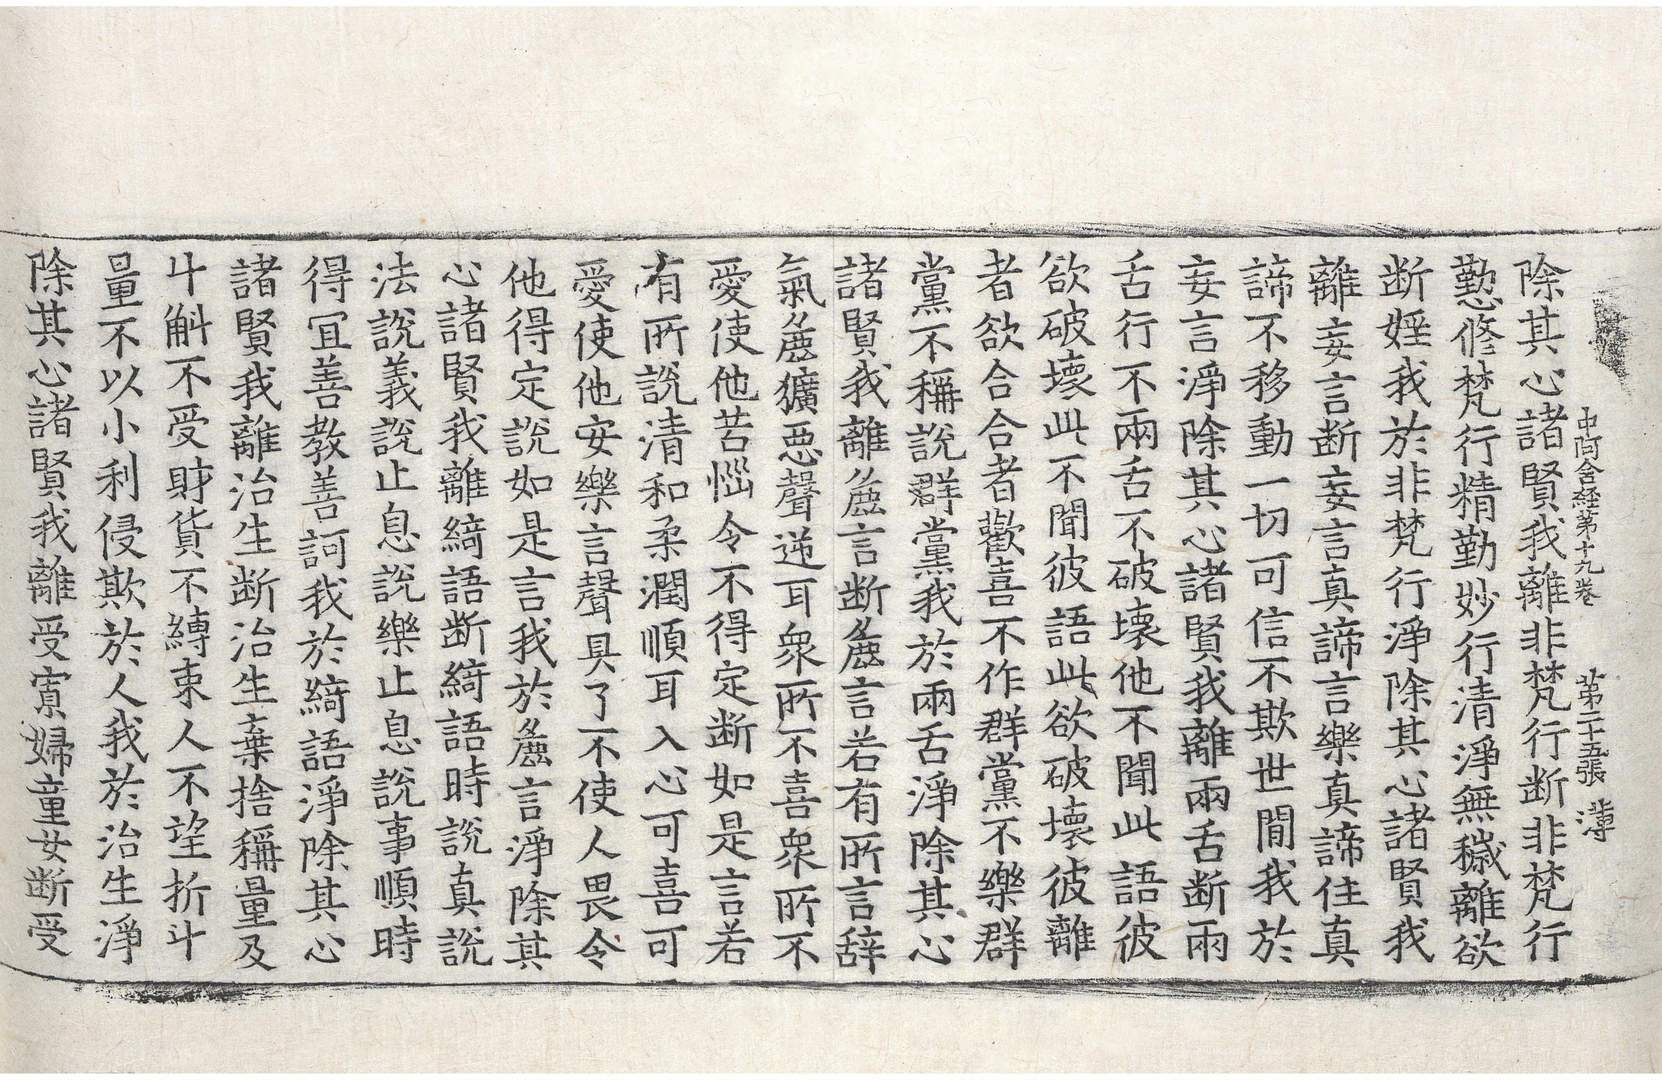 中阿含經第十九卷 第二十五張 薄
除其心諸賢我離非梵行断非梵行
懃修梵行精勤妙行清淨無穢離欲
断婬我於非梵行淨除其心諸賢我
離妄言断妄言真諦言樂真諦住真
諦不移動一切可信不欺世間我於
妄言淨除其心諸賢我離兩舌断兩
舌行不兩舌不破壞他不聞此語彼
欲破壞此不聞彼語此欲破壞彼離
者欲合合者歡喜不作群黨不樂群
黨不稱說群黨我於兩舌淨除其心
諸賢我離麁言断麁言若有所言辞
氣麁獷惡聲逆耳衆所不喜衆所不
愛使他苦惱令不得定断如是言若
有所說清和柔潤順耳入心可喜可
愛使他安樂言聲具了不使人畏令
他得定說如是言我於麁言淨除其
心諸賢我離綺語断綺語時說真說
法說義說止息說樂止息說事順時
得冝善教善訶我於綺語淨除其心
諸賢我離治生断治生棄捨稱量及
斗斛不受財貨不縛束人不望折斗
量不以小利侵欺於人我於治生淨
除其心諸賢我離受寡婦童女断受